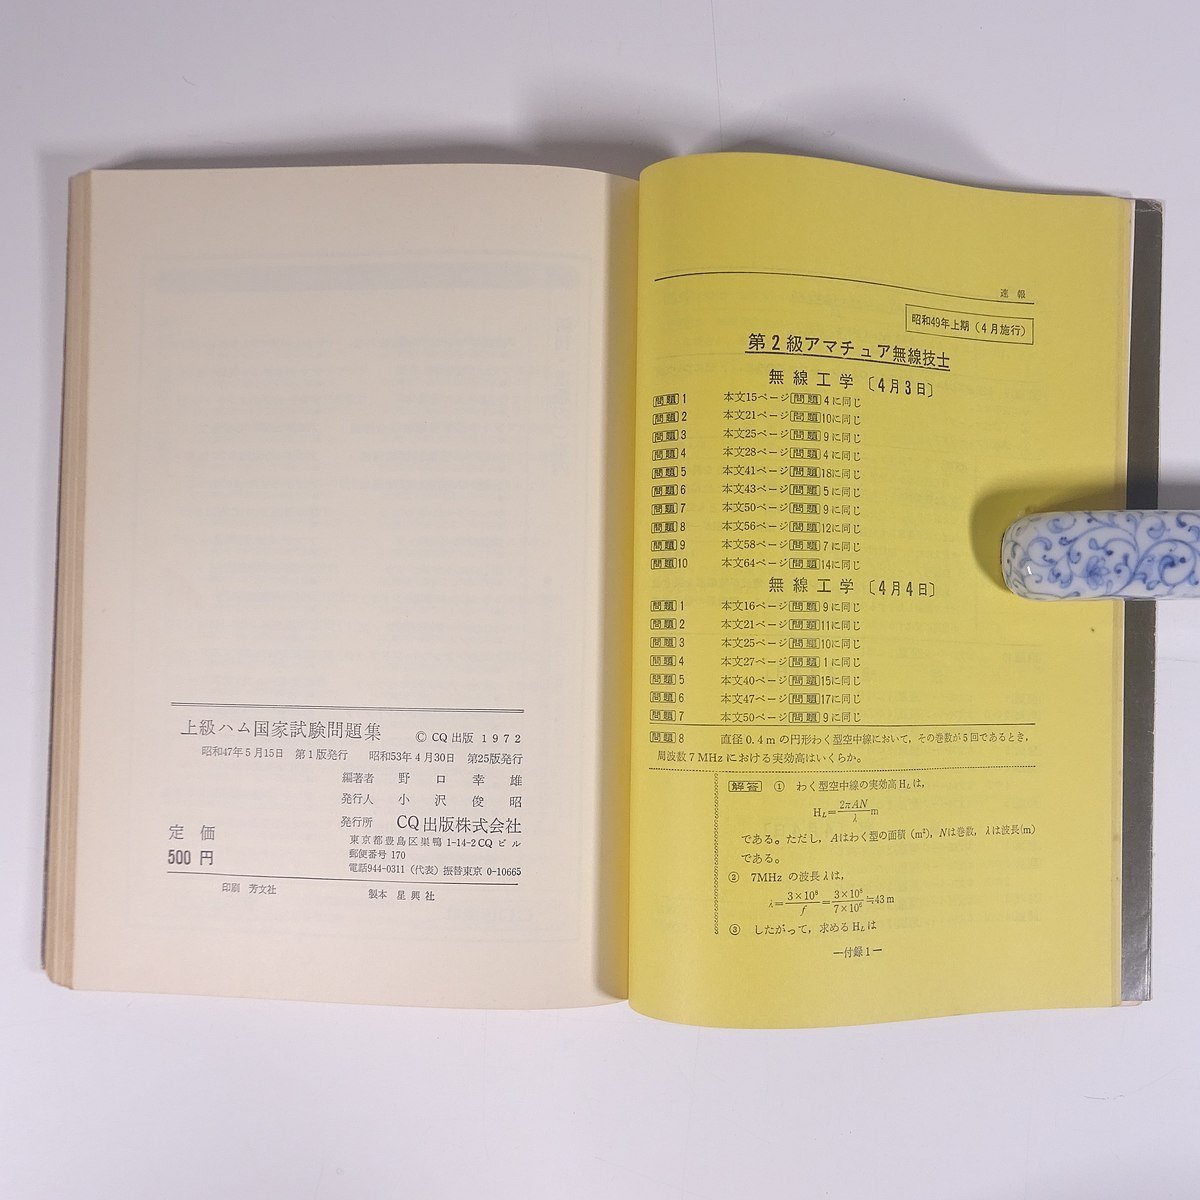 上級ハム国家試験問題集 © CQ 出版 1972
昭和47年5月15日 第1版発行 昭和53年4月30日 第25版発行
編著者 野口幸雄
発行人 小沢俊昭
発行所 CQ出版株式会社
東京都豊島区巣鴨 1-14-2 CQ ビル
郵便番号 170
電話944-0311 (代表) 振替東京 0-10665
定価
500 円
印刷 芳文社 製本 星興社
速報
昭和49年上期(4月施行)
第2級アマチュア無線技士
無線工学〔4月3日〕
問題1 本文15ページ問題4に同じ
問題2 本文21ページ問題10に同じ
問題3 本文25ページ問題9に同じ
問題4 本文28ページ問題4に同じ
問題5 本文41ページ問題18に同じ
問題6 本文43ページ問題5に同じ
問題7 本文50ページ問題9に同じ
問題8 本文56ページ問題12に同じ
問題9 本文58ページ問題7に同じ
問題10 本文64ページ問題14に同じ
無線工学〔4月4日〕
問題1 本文16ページ問題9に同じ
問題2 本文21ページ問題11に同じ
問題3 本文25ページ問題10に同じ
問題4 本文27ページ問題1に同じ
問題5 本文40ページ問題15に同じ
問題6 本文47ページ問題17に同じ
問題7 本文50ページ問題9に同じ
問題8 直径0.4mの円形わく型空中線において,その巻数が5回であるとき,
周波数7MHzにおける実効高はいくらか。
解答 ① わく型空中線の実効高HLは,
HL=2πAN/λ m
である。ただし,Aはわく型の面積(m²),Nは巻数,λは波長(m)
である。
② 7MHz の波長λは,
λ=3×10⁸/f=3×10⁸/7×10⁶≒43m
③ したがって,求めるHLは
—付録1—